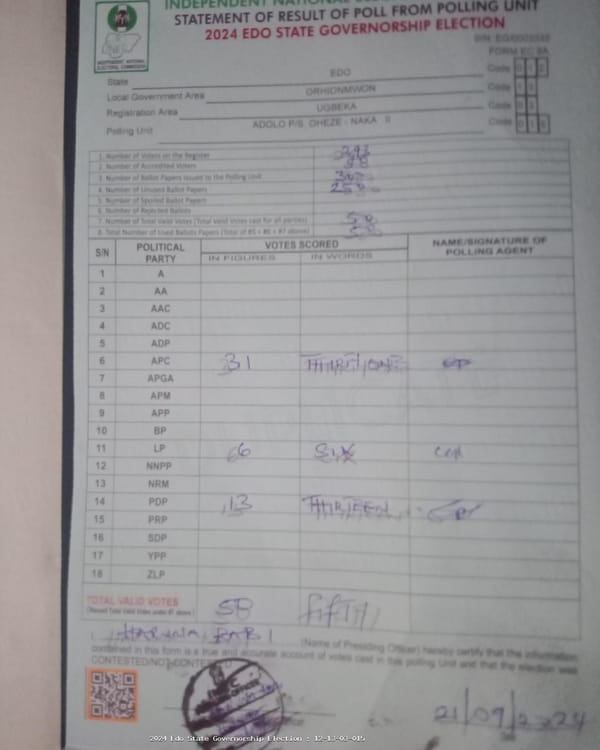 INDEPENDENT NATIONAL
STATEMENT OF RESULT OF POLL FROM POLLING UNIT
2024 EDO STATE GOVERNORSHIP ELECTION
INDEPENDENT NATIONAL ELECTORAL COMMISSION
FORM EC 8A
State EDO Code
Local Government Area ORHIONMWON Code
Registration Area UGBEKA Code
Polling Unit ADOLO P/S, OHEZE - NAKA II Code
1. Number of Voters on the Register
2. Number of Accredited Voters
3. Number of Ballot Papers issued to the Polling Unit
4. Number of Unused Ballot Papers
5. Number of Spoiled Ballot Papers
6. Number of Rejected Ballots
7. Number of Total Valid Votes (Total Valid Votes cast for all parties)
8. Total Number of Used Ballots Papers (Total of #5 + #6 + #7 above)
S/N POLITICAL PARTY VOTES SCORED NAME/SIGNATURE OF POLLING AGENT
IN FIGURES IN WORDS
1 A
2 AA
3 AAC
4 ADC
5 ADP
6 APC 31
7 APGA
8 APM
9 APP
10 BP
11 LP 6 SIX
12 NNPP
13 NRM
14 PDP 13 THIRTEEN
15 PRP
16 SDP
17 YPP
18 ZLP
TOTAL VALID VOTES 50
(Name of Presiding Officer) hereby certify that the information
contained in this form is a true and accurate account of votes cast in this polling Unit and that the election was
CONTESTED/NOT CONTESTED
21/09/2024
2024 Edo State Governorship Election : 12-13-03-015